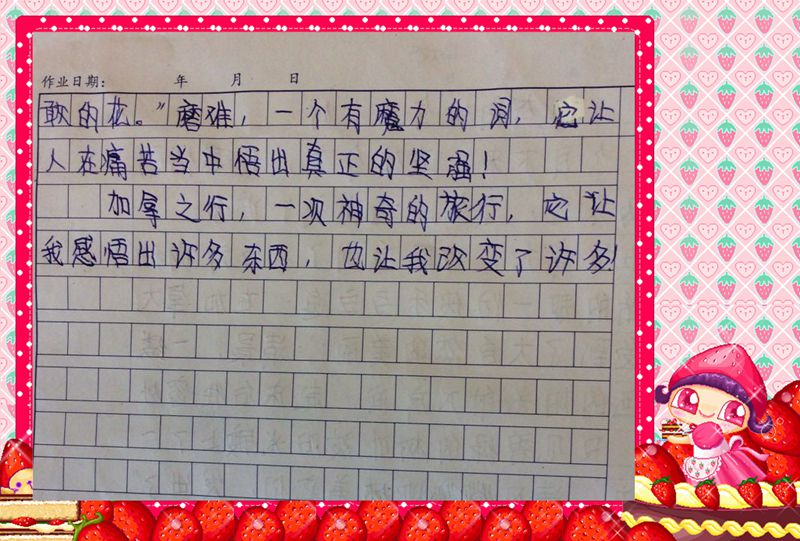 作业日期： 年 月 日
敢的花。”磨难，一个有魔力的词，它让
人在痛苦当中悟出真正的坚强！
加拿之行，一次神奇的旅行，它让
我感悟出许多东西，也让我改变了许多！